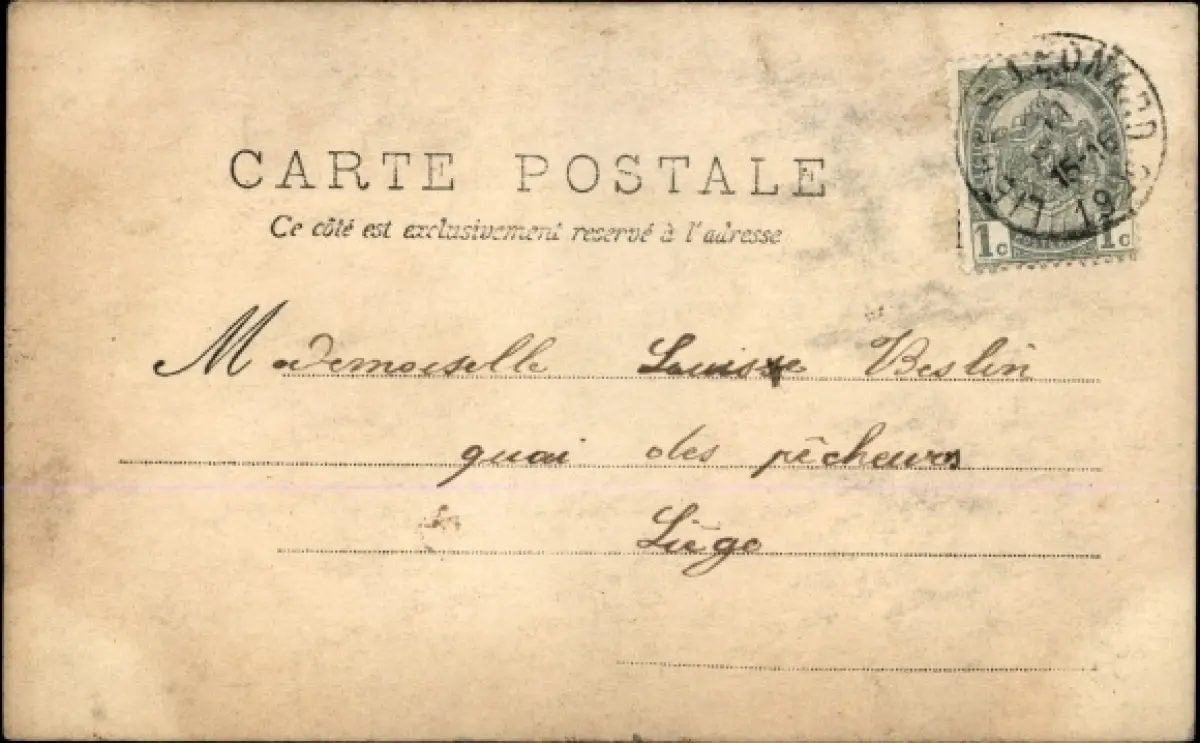 CARTE POSTALE
Ce côté est exclusivement reservé à l'adresse
1c 1c
LEONARD
15-16
Mademoiselle Louise Beslin
quai des pêcheurs
Liége